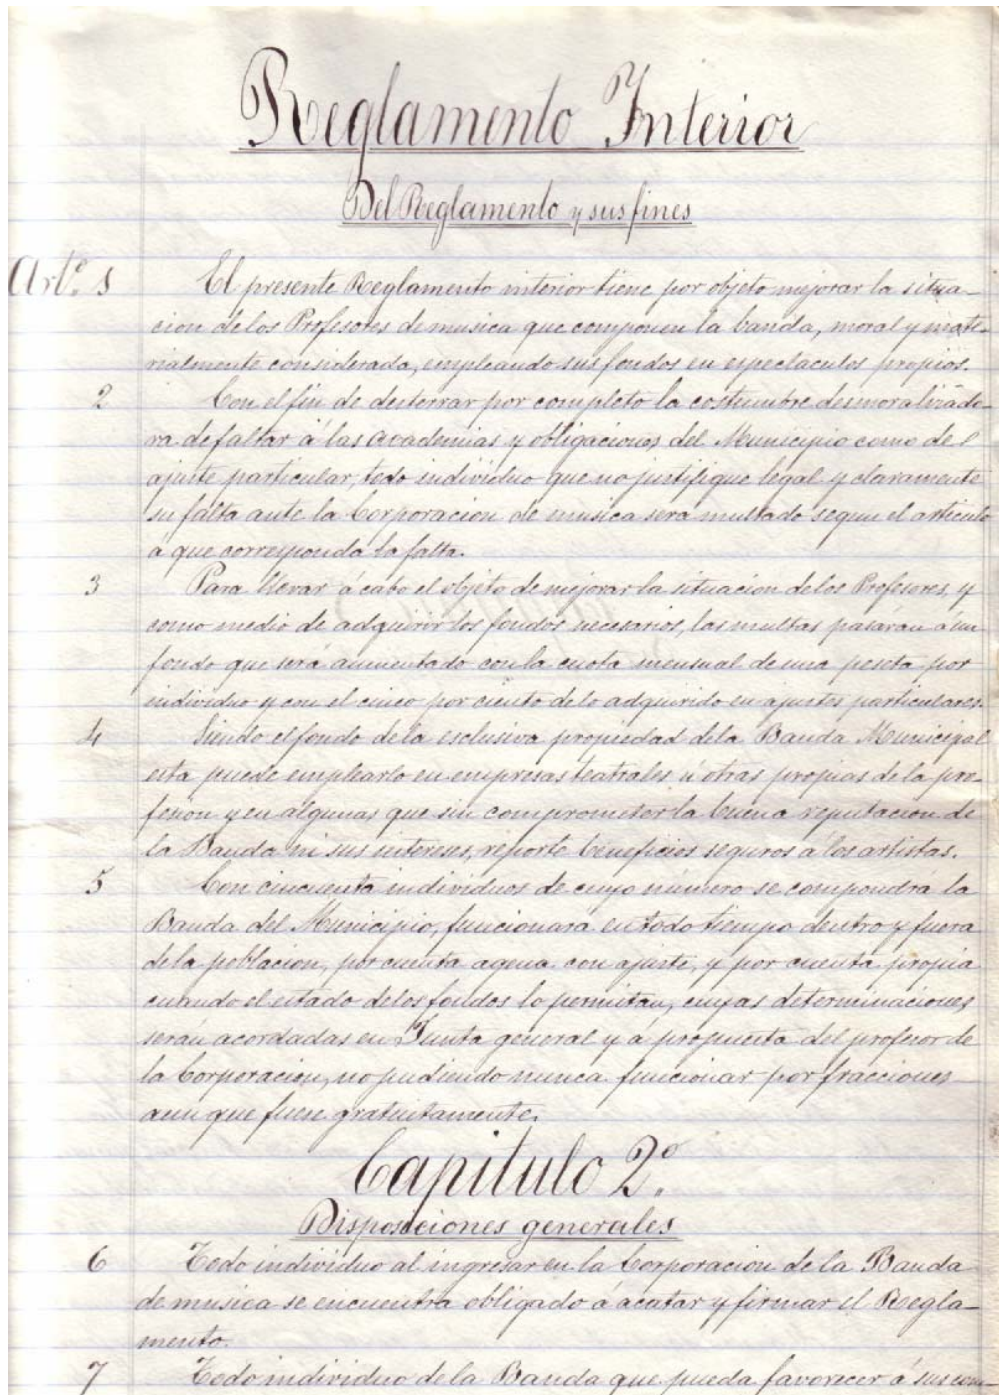 Reglamento Interior
Del Reglamento y sus fines
Art.º 1 El presente Reglamento interior tiene por objeto mejorar la situa-
cion de los Profesores de musica que componen la banda, moral y mate-
rialmente considerada, empleando sus fondos en espectáculos propios.
2 Con el fin de desterrar por completo la costumbre desmoralizado-
ra de faltar á las Academias y obligaciones del Municipio como del
ajuste particular, todo individuo que no justifique legal y claramente
su falta ante la Corporacion de musica será multado segun el articulo
á que corresponda la falta.
3 Para llevar á cabo el objeto de mejorar la situacion de los Profesores, y
como medio de adquirir los fondos necesarios, las multas pasarán á un
fondo que será aumentado con la cuota mensual de una peseta por
individuo y con el cinco por ciento de lo adquirido en ajustes particulares.
4 Siendo el fondo de la esclusiva propiedad de la Banda Municipal
esta puede emplearlo en empresas teatrales ú otras propias de la pro-
fesion y en algunas que sin comprometer la buena reputacion de
la Banda ni sus intereses, reporte beneficios seguros á los artistas.
5 Con cincuenta individuos de cuyo número se compondrá la
Banda del Municipio, funcionará en todo tiempo dentro y fuera
de la poblacion, por cuenta agena con ajuste, y por cuenta propia
cuando el estado de los fondos lo permitan, cuyas determinaciones
serán acordadas en Junta general y á propuesta del profesor de
la Corporacion, no pudiendo nunca funcionar por fracciones
aun que fuese gratuitamente.
Capitulo 2º.
Disposiciones generales
6 Todo individuo al ingresar en la Corporacion de la Banda
de musica se encuentra obligado á acatar y firmar el Regla-
mento.
7 Todo individuo de la Banda que pueda favorecer á sus com-